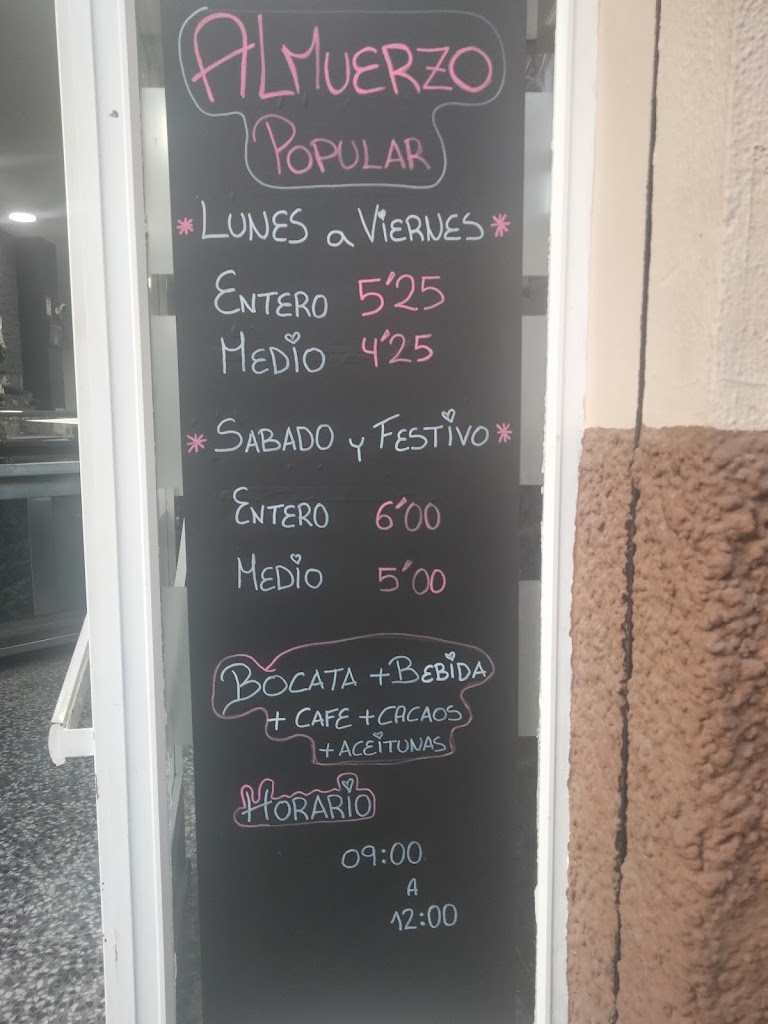 ALMUERZO
POPULAR
* LUNES a VIERNES *
ENTERO 5'25
MEDIO 4'25
* SABADO y FESTIVO *
ENTERO 6'00
MEDIO 5'00
BOCATA + BEBIDA
+ CAFE + CACAOS
+ ACEITUNAS
HORARIO
09:00
A
12:00